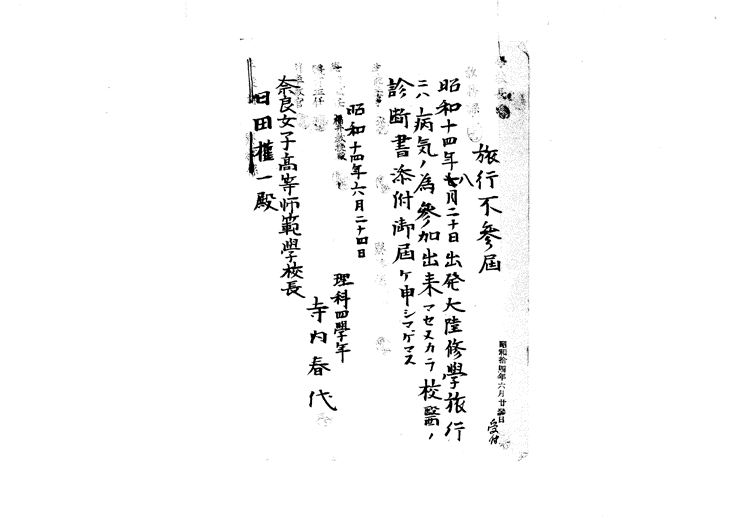 旅行不參屆
昭和十四年八月二十日出発大陸修學旅行
ニハ病気ノ為參加出来マセヌカラ校醫ノ
診断書添附御屆ケ申シマゲマス
昭和十四年六月二十四日
理科四學年
寺内春代
奈良女子高等師範學校長
田權一殿
昭和拾四年六月廿 日
受付